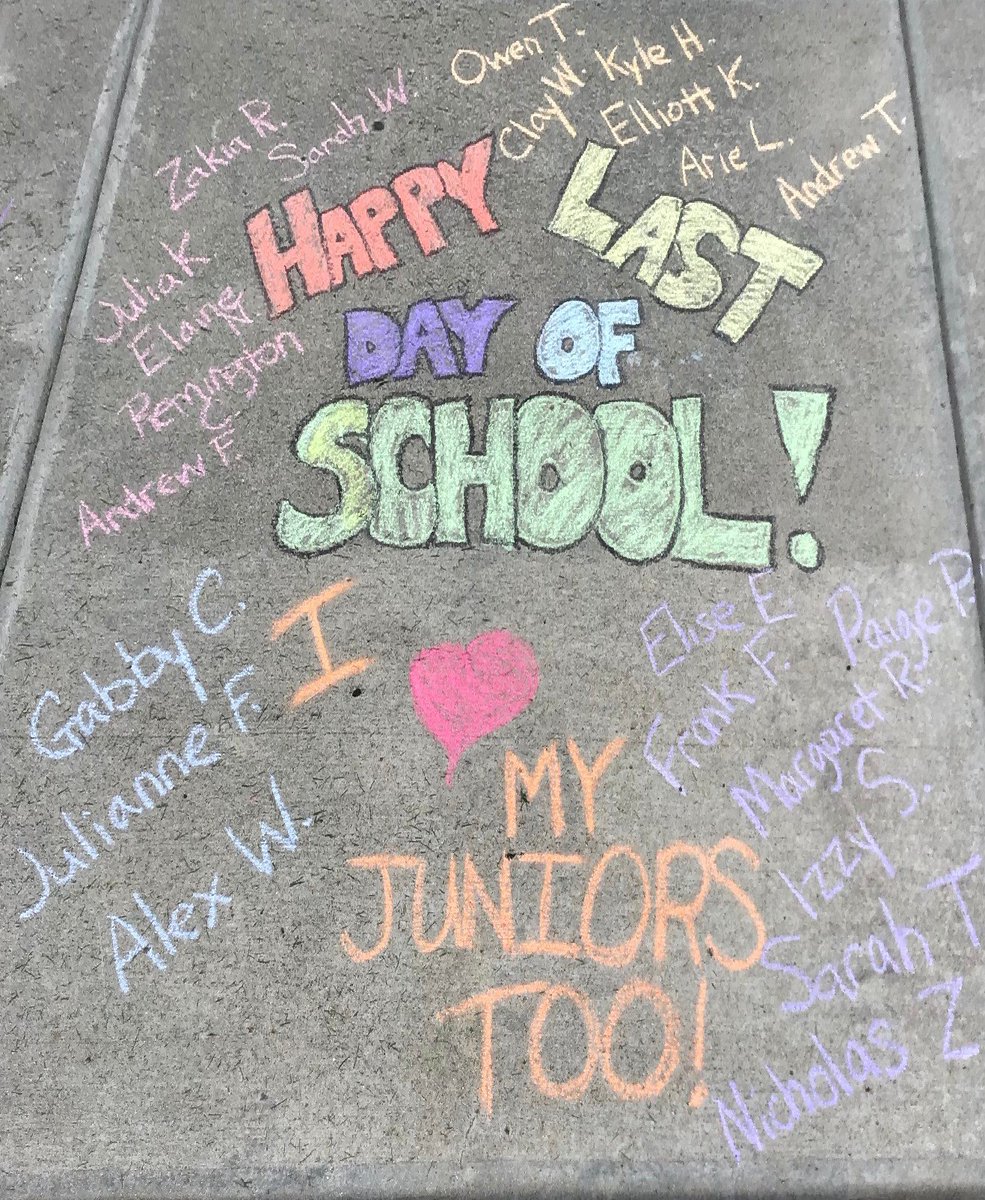 Owen T.
Clay W.
Kyle H.
Elliott K.
Arie L.
Andrew T.
Zakia R.
Sarah W.
Julia K
Elaine
N
Remington
C
Andrew F.
HAPPY LAST
DAY OF
SCHOOL!
I ♥
MY
JUNIORS
TOO!
Gabby C.
Julianne F.
Alex W.
Elise E
Frank F.
Paige P.
Margaret R.
Izzy S.
Sarah T
Nicholas Z